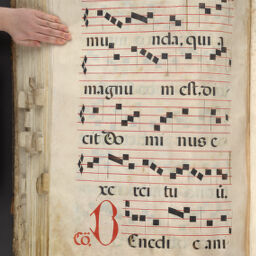 mu nda, qui a
magnu m est. di
cit Do mi nus e
xe rci tu ũ.
Cõ. B Enedi c ani